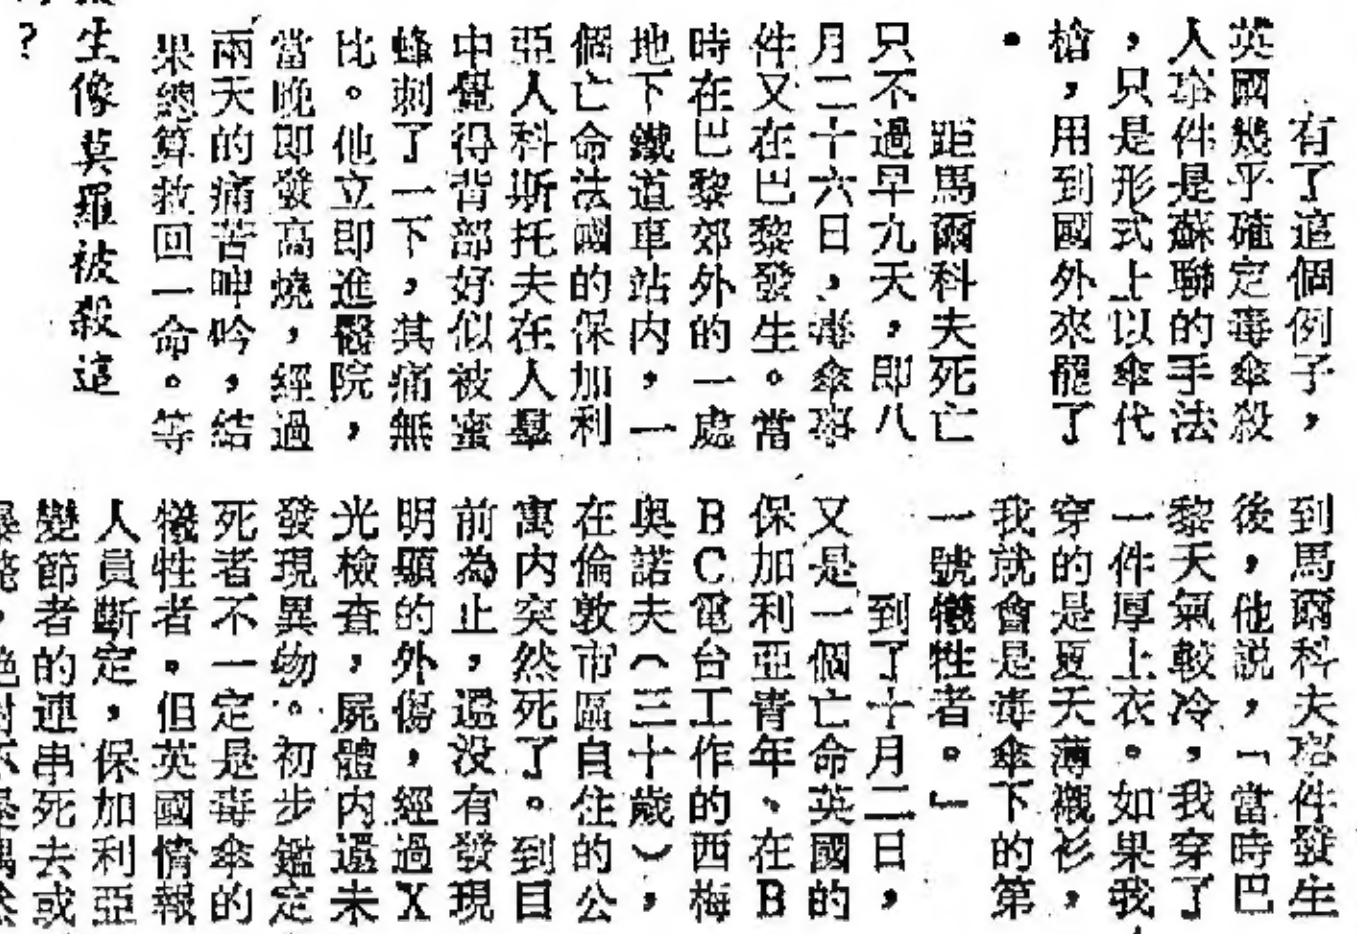 有了這個例子，
英國幾乎確定毒傘殺
人事件是蘇聯的手法
，只是形式上以傘代
槍，用到國外來罷了
。
距馬爾科夫死亡
只不過早九天，即八
月二十六日，毒傘事
件又在巴黎發生。當
時在巴黎郊外的一處
地下鐵道車站内，一
個亡命法國的保加利
亞人科斯托夫在人羣
中覺得背部好似被蜜
蜂刺了一下，其痛無
比。他立即進醫院，
當晚即發高燒，經過
兩天的痛苦呻吟，結
果總算救回一命。等
到馬爾科夫事件發生
後，他説，「當時巴
黎天氣較冷，我穿了
一件厚上衣。如果我
穿的是夏天薄襯衫，
我就會是毒傘下的第
一號犧牲者。」
到了十月二日，
又是一個亡命英國的
保加利亞青年、在B
BC電台工作的西梅
奥諾夫（三十歲），
在倫敦市區自住的公
寓内突然死了。到目
前為止，還没有發現
明顯的外傷，經過X
光檢查，屍體内還未
發現異物。初步鑑定
死者不一定是毒傘的
犧牲者。但英國情報
人員斷定，保加利亞
變節者的連串死去或
生像莫羅被殺這
？